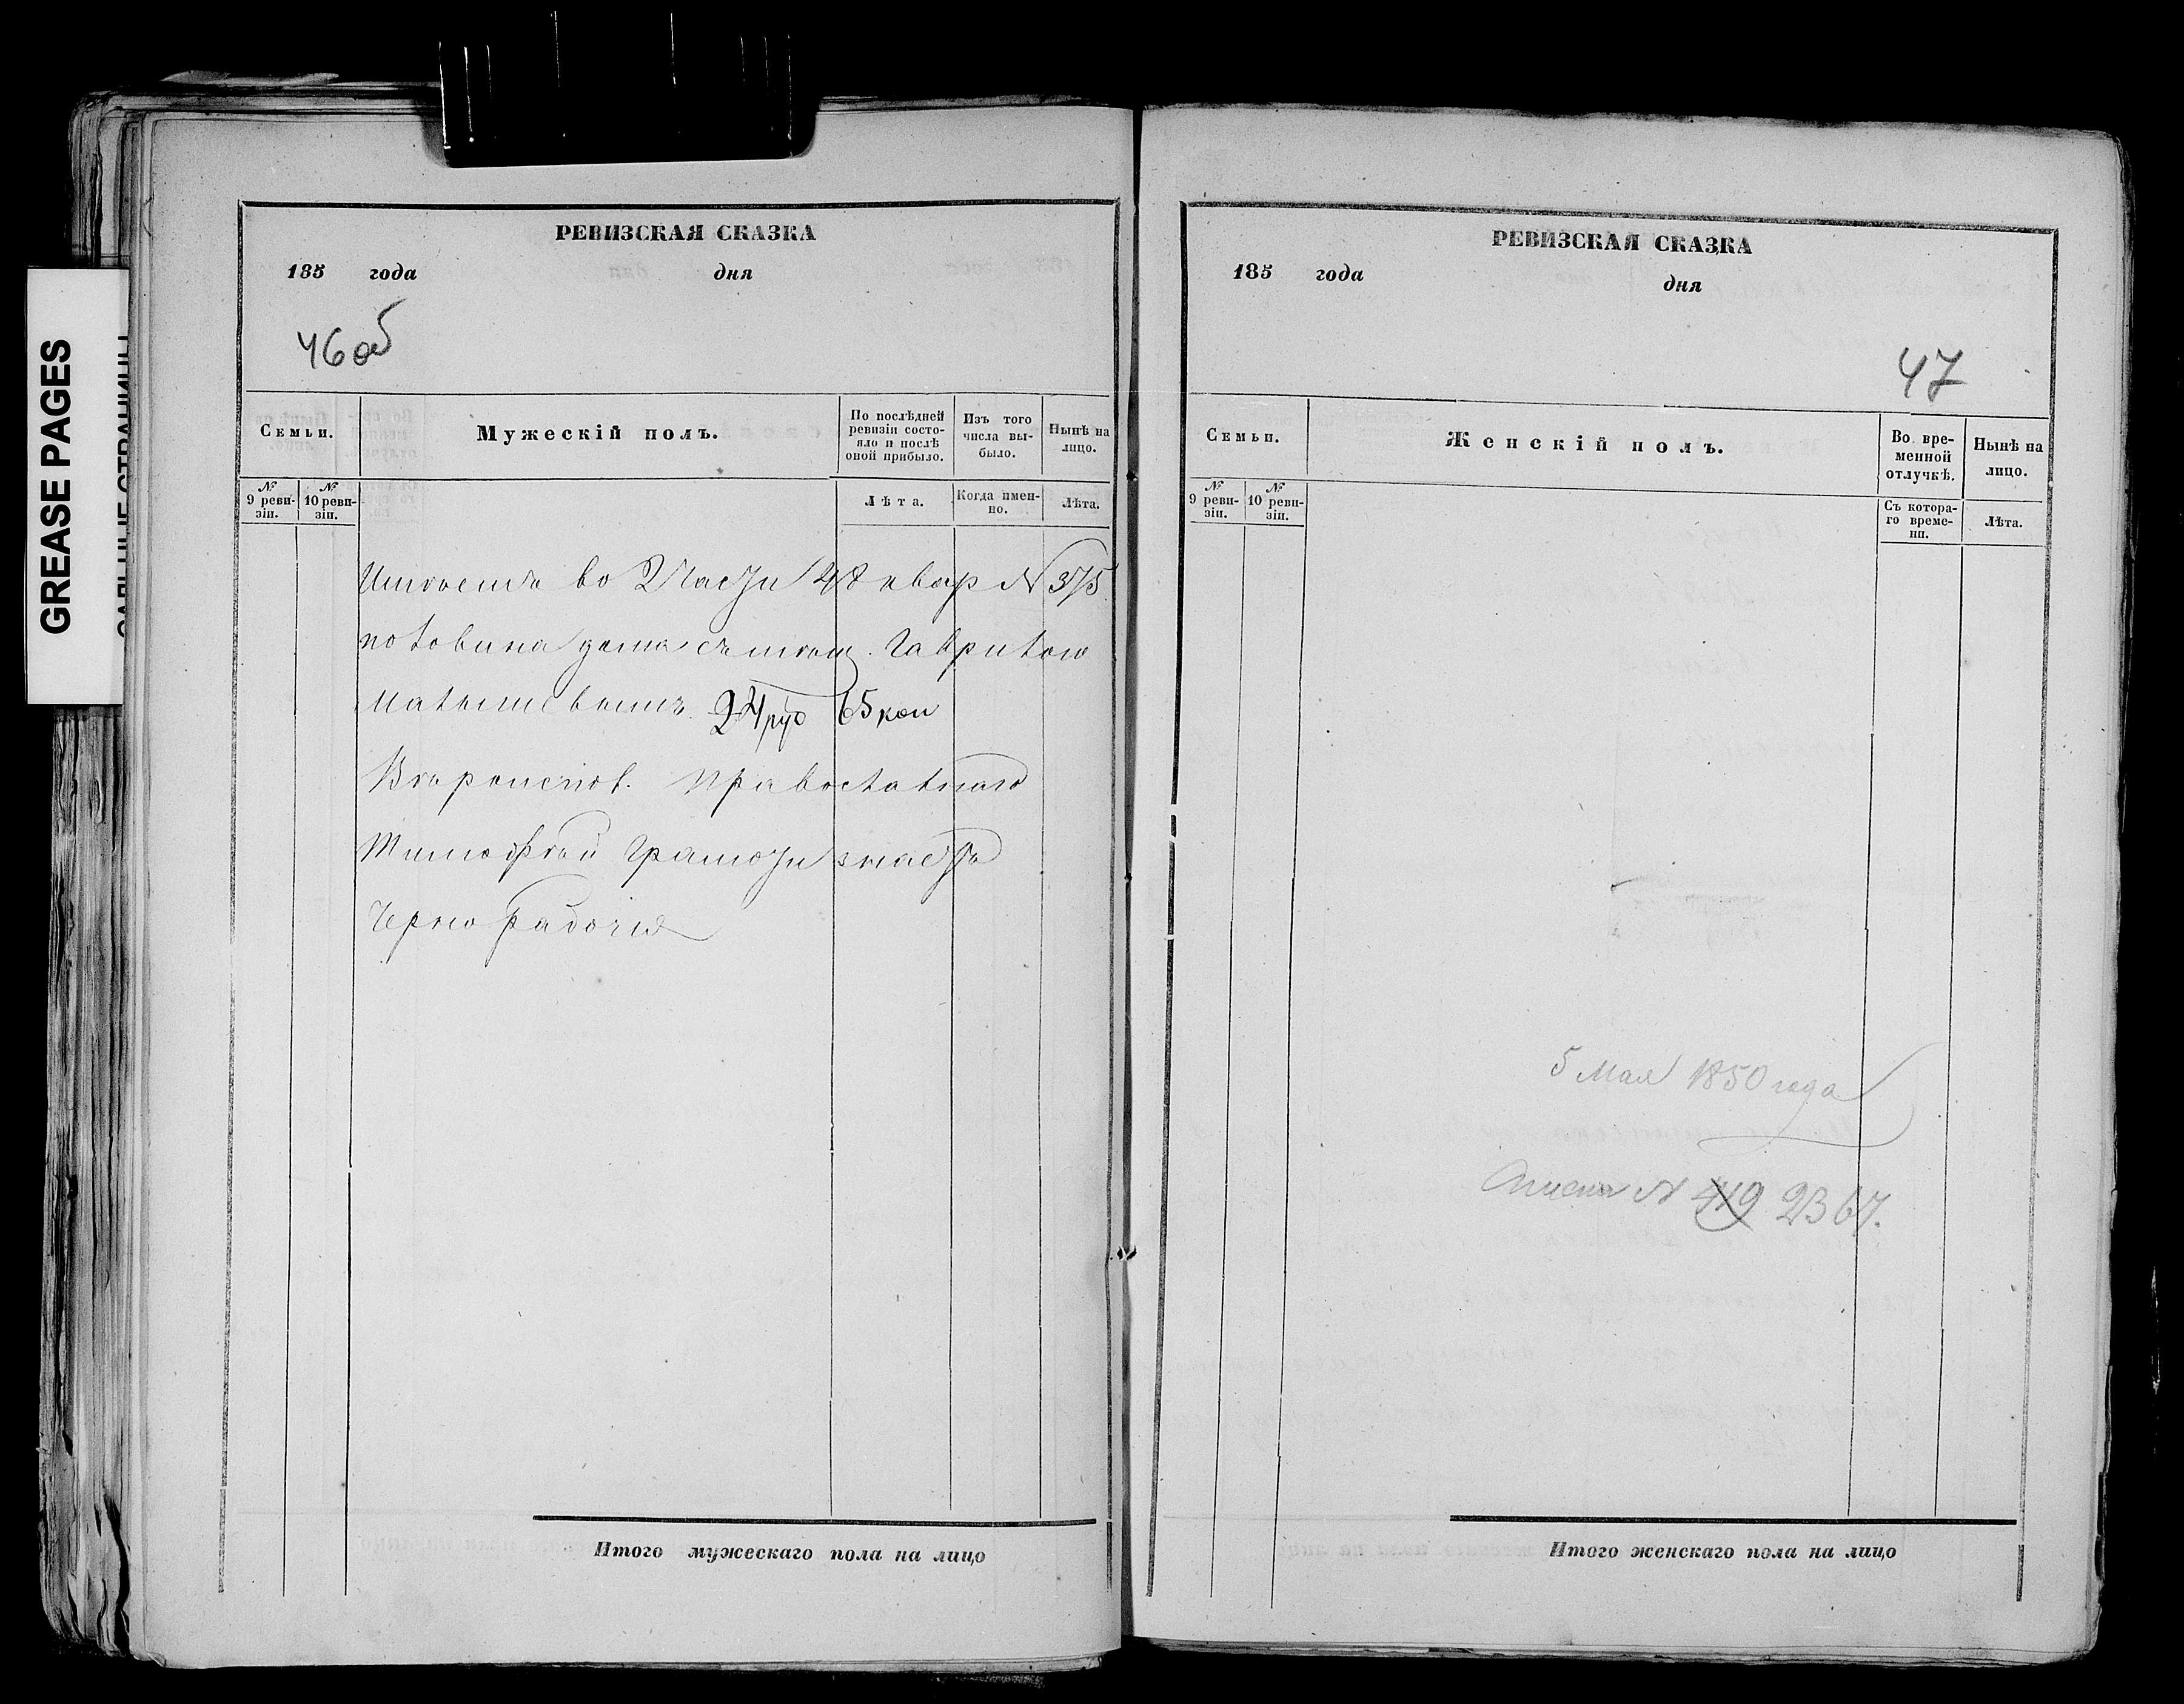 GREASE PAGES
РЕВИЗСКАЯ СКАЗКА
185 года дня
46 об
Семьи.
Мужескій полъ.
По послѣдней ревизіи состояло и послѣ оной прибыло.
Изъ того числа выбыло.
Нынѣ на лицо.
№ 9 ревизіи.
№ 10 ревизіи.
Лѣта.
Когда именно.
Лѣта.
во 2 части 48 квар N 375
половина дома съ Гаврилою
24 руб 65 коп
Православнаго
Тимофѣй грамоти знаетъ
Черно рабочія
Итого мужескаго пола на лицо
РЕВИЗСКАЯ СКАЗКА
185 года дня
47
Семьи.
Женскій полъ.
Во временной отлучкѣ.
Нынѣ на лицо.
№ 9 ревизіи.
№ 10 ревизіи.
Съ котораго времени.
Лѣта.
5 Мая 1850 года
N 419 2367.
Итого женскаго пола на лицо